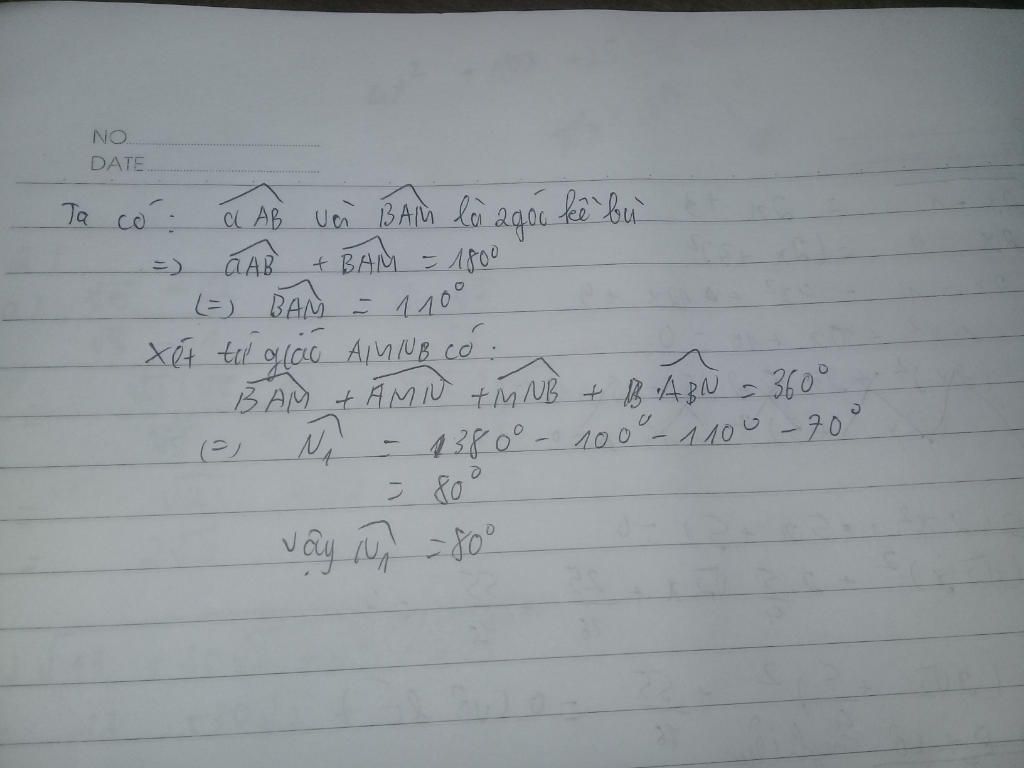 NO
DATE
Ta có: aAB và BAM là 2 góc kề bù
=> aAB + BAM = 180°
(=) BAM = 110°
Xét tứ giác AMNB có:
BAM + AMN + MNB + ABN = 360°
(=) N₁ = 380° - 100° - 110° - 70°
= 80°
Vậy N₁ = 80°